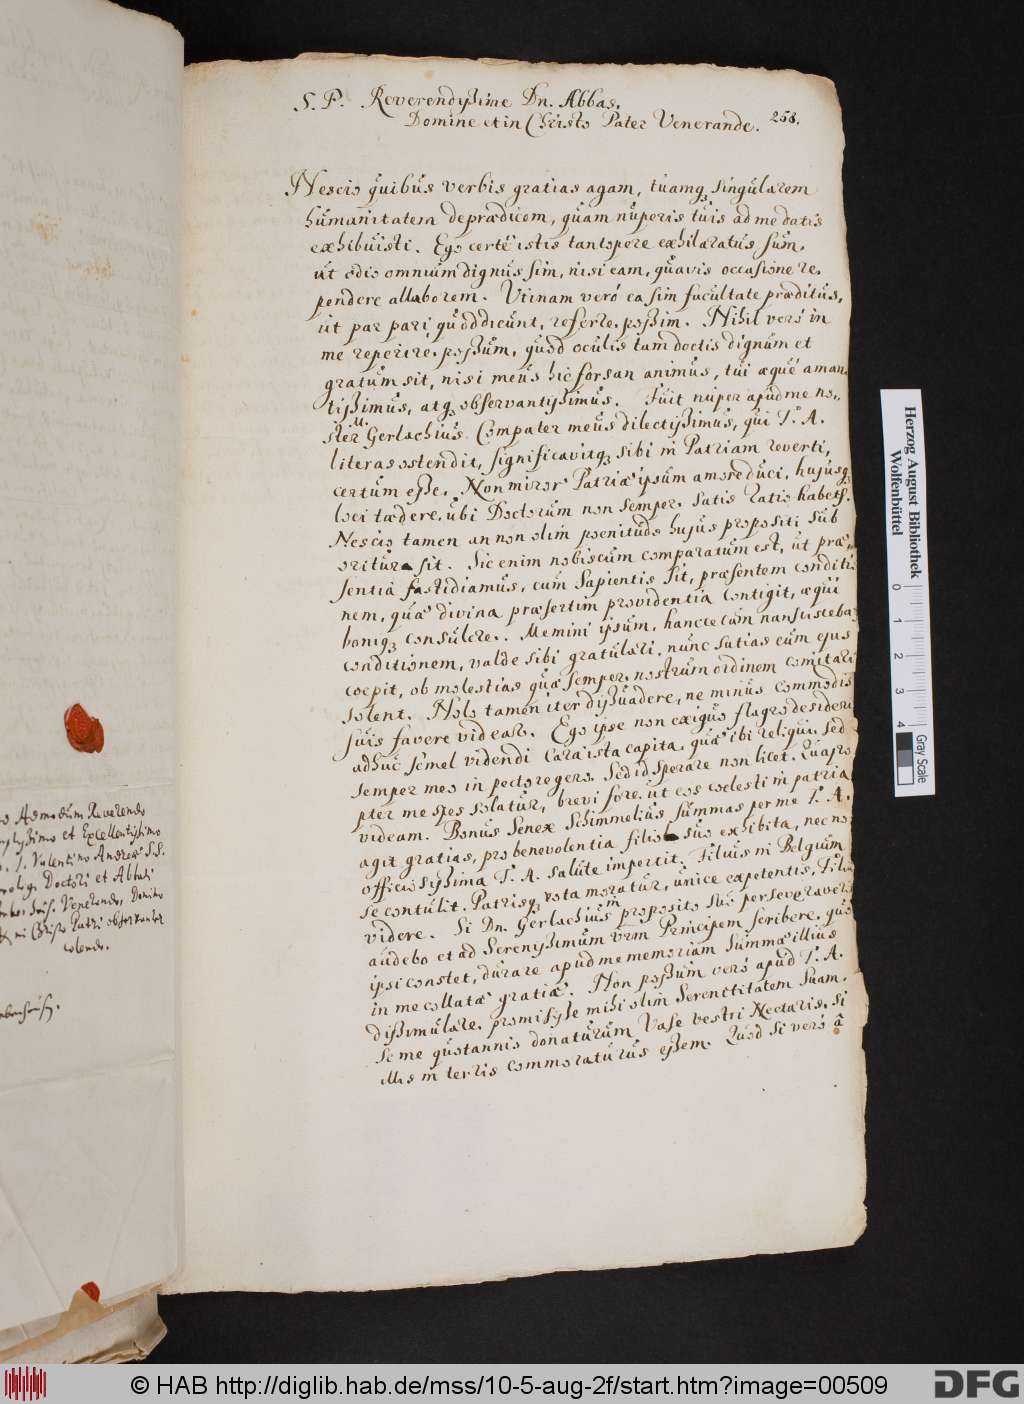 S. P. Reverendissime Dn. Abbas,
Domine et in Christo Pater Venerande.
258.
Nescio quibus verbis gratias agam, tuamq; singularem
humanitatem deprædicem, quam nuperis tuis ad me datis
exhibuisti. Ego certè istis tantopere exhilaratus sum,
ut odio omnium dignus sim, nisi eam, quavis occasione re,
pendere allaborem. Utinam verò ea sim facultate præditus,
ut par pari, quod dicunt, referre possim. Nihil verò in
me reperire possum, quod oculis tam doctis dignum et
gratum sit, nisi meus hic forsan animus, tui æquè aman,
tissimus, atq; observantissimus. Fuit nuper apud me no,,
ster M. Gerlachius Compater meus dilectissimus, qui T. A.
literas ostendit, significavitq; sibi in Patriam reverti,
certum esse. Non miror Patriæ ipsum amore duci, hujusq;
loci tædere, ubi Doctorum non semper satis ratio habetur.
Nescio tamen an non olim poenitudo hujus propositi sub
oritura sit. Sic enim nobiscum comparatum est, ut præ,,
sentia fastidiamus, cum Sapientis sit, præsentem conditio
nem, quæ divina præsertim providentia contigit, æqui
boniq; consulere. Memini ipsum, hancce cum nancisceba
conditionem, valde sibi gratulari, nunc satias eum ejus
coepit, ob molestias quæ semper nostrum ordinem comitari
solent. Nolo tamen iter dissuadere, ne minus commodis
suis favere videar. Ego ipse non exiguo flagro desiderio
adhuc semel videndi cara ista capita, quæ ibi reliqui, sed
semper meo in pectore gero. Sed id sperare non licet. Quapro
pter me spes solatur, brevi fore, ut eos coelesti in patria
videam. Bonus Senex Schimmelius summas per me T. A.
agit gratias, pro benevolentia filio suo exhibita, nec no
officiosissima T. A. salute impertit. Filius in Belgium
se contulit. Patrisq; vota moratur, unice expetentis, Filiu
videre. Si Dn. Gerlachius in proposito suo perseveraverit
audebo et ad Serenissimum vrm Principem scribere, quo
ipsi constet, durare apud me memoriam summæ illius
in me collatæ gratiæ. Non possum verò apud T. A.
dissimulare, promisisse mihi olim Serenititatem Suam,
se me quotannis donaturum Vase vestri Nectaris, si
illis in terris commoraturus essem. Quod si verò â
Admodum Reverendo
et Excellentissimo
J. Valentino Andreæ S.S.
Doctori et Abbati
Venerando, Domino
in Christo Patri observanter
colendo.
Herzog August Bibliothek
Wolfenbüttel
0 1 2 3 4
Gray Scale
© HAB http://diglib.hab.de/mss/10-5-aug-2f/start.htm?image=00509
DFG